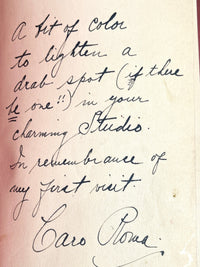 A bit of color
to lighten a
drab spot (if there
be one!!) in your
charming Studio.
In remembrance of
my first visit.
Caro Roma.